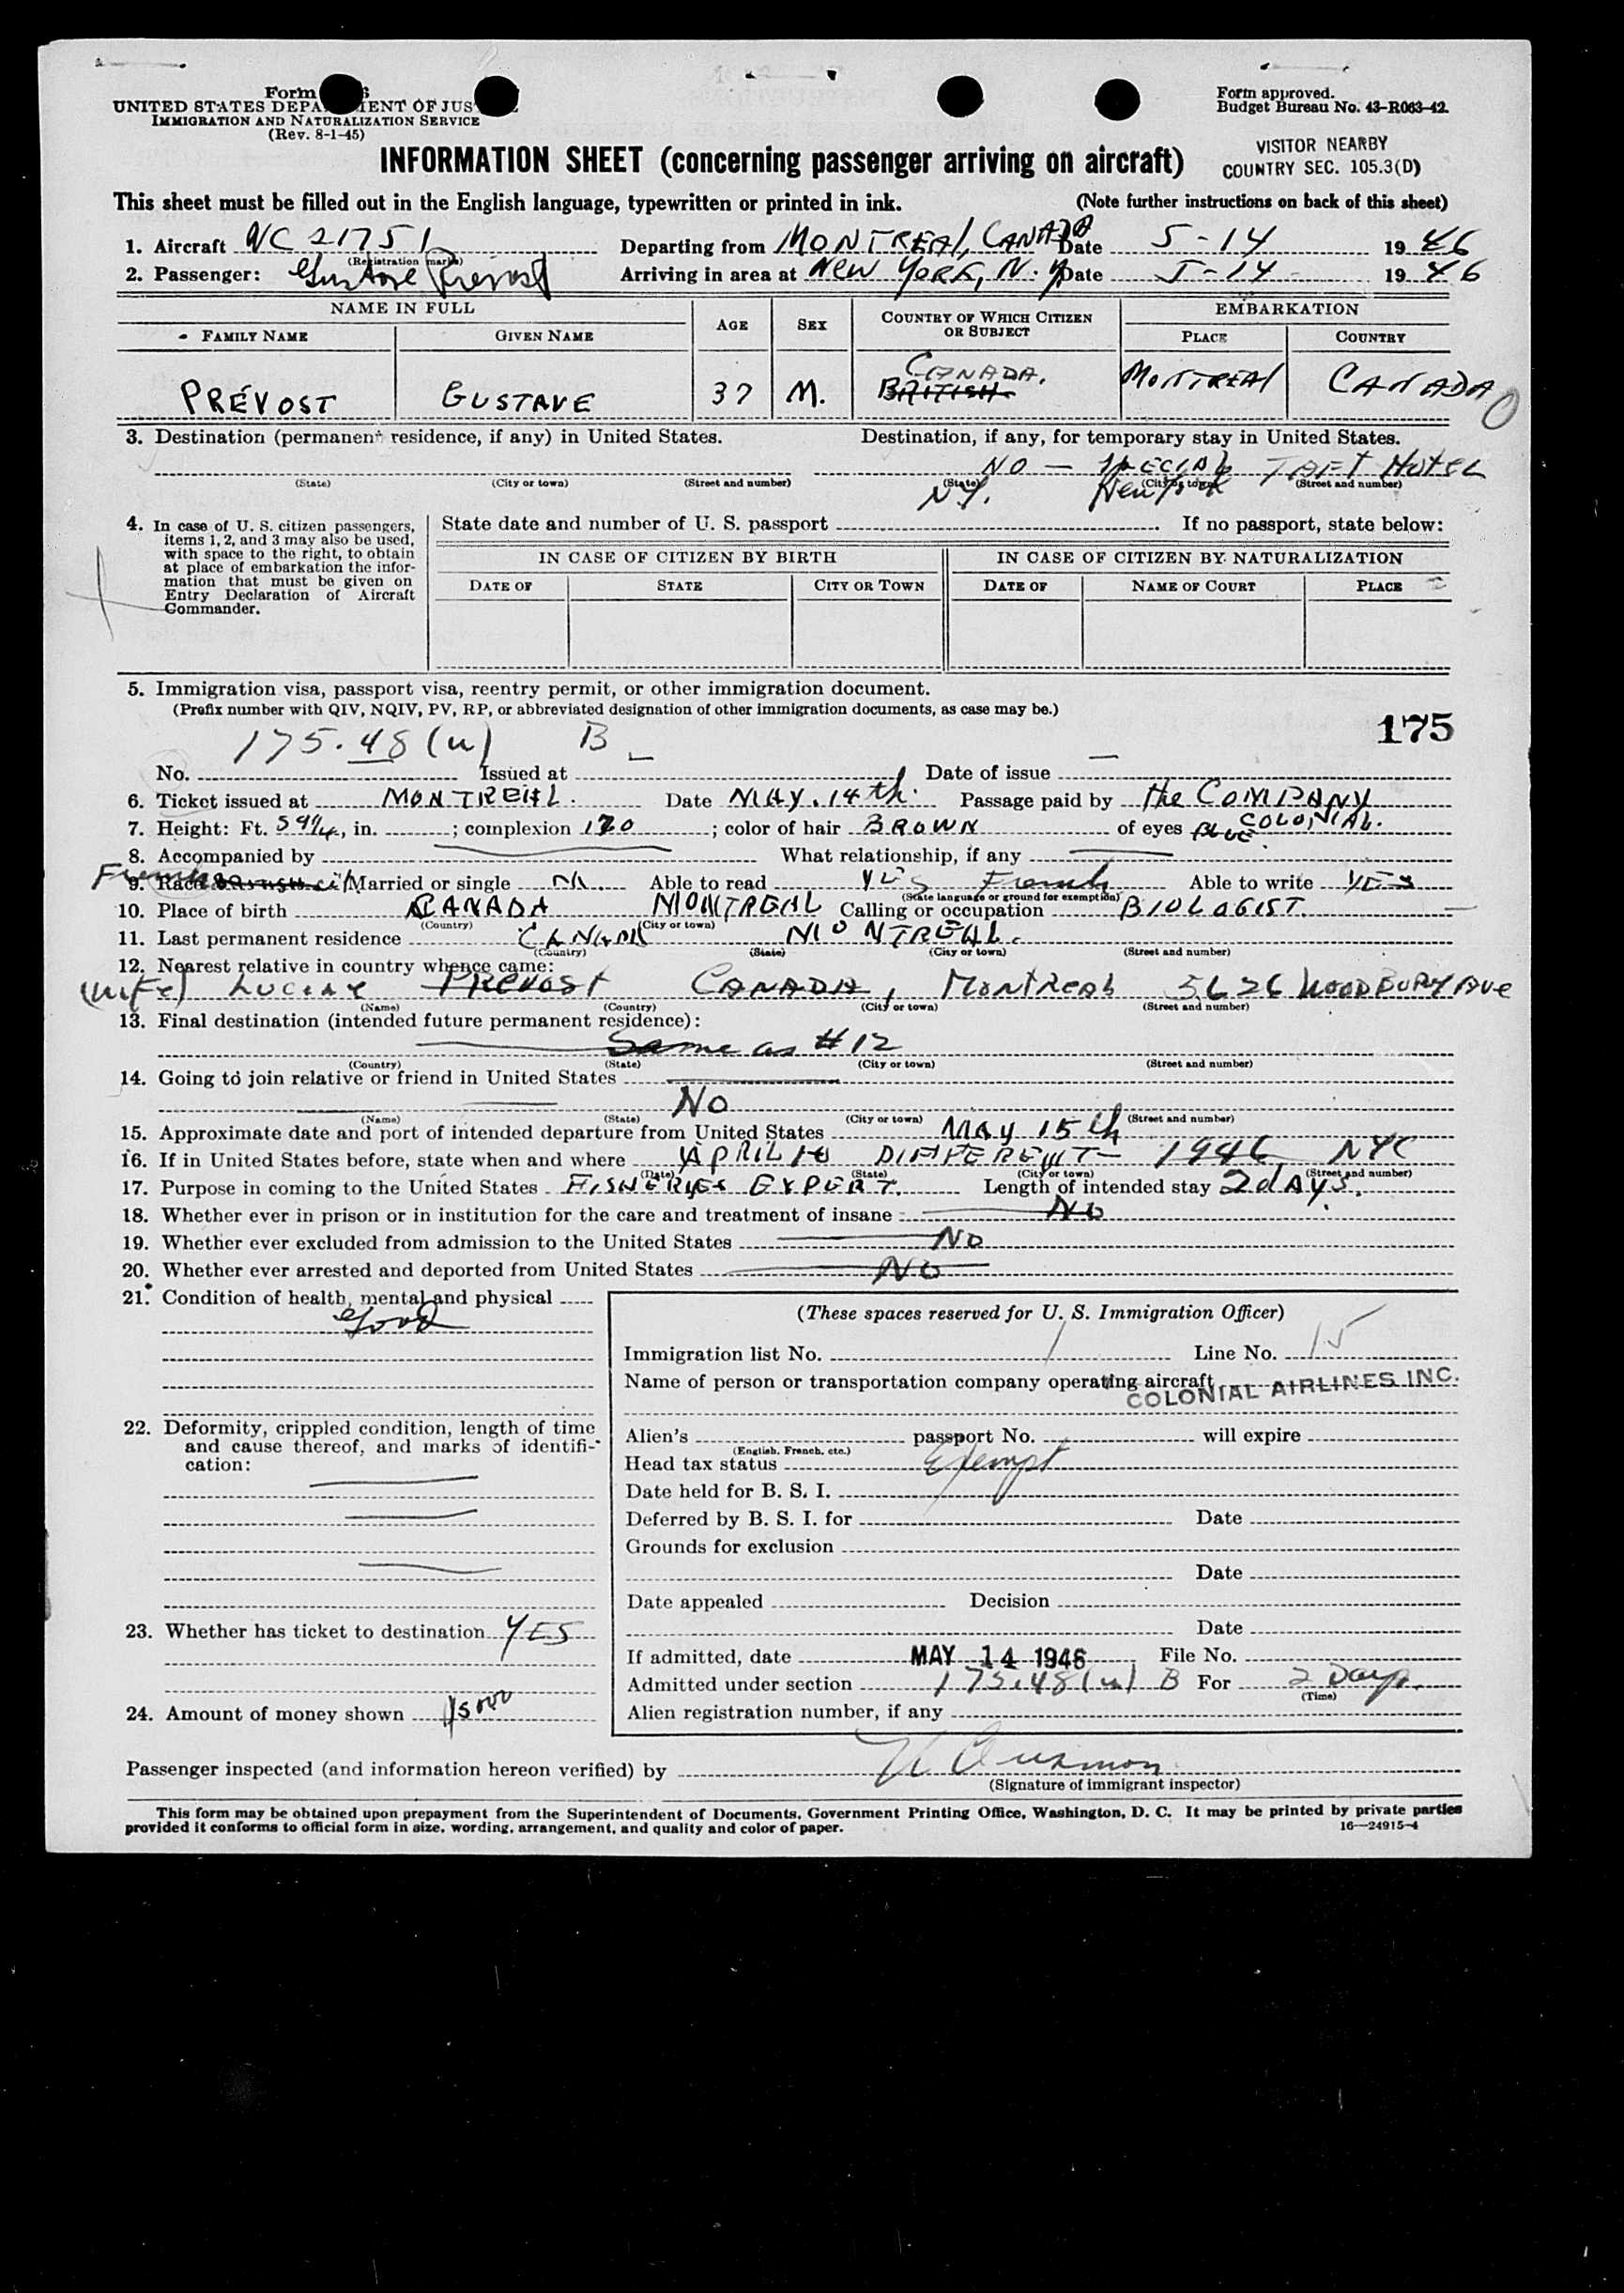 Form
UNITED STATES DEPARTMENT OF JUSTICE
IMMIGRATION AND NATURALIZATION SERVICE
(Rev. 8-1-45)
Form approved.
Budget Bureau No. 43-R063-42.
VISITOR NEARBY
COUNTRY SEC. 105.3(D)
INFORMATION SHEET (concerning passenger arriving on aircraft)
This sheet must be filled out in the English language, typewritten or printed in ink. (Note further instructions on back of this sheet)
1. Aircraft NC 21751 Departing from MONTREAL, CANADA Date 5-14 1946
(Registration marks)
2. Passenger: Gustave Prévost Arriving in area at New York, N.Y. Date 5-14- 1946
NAME IN FULL AGE SEX COUNTRY OF WHICH CITIZEN OR SUBJECT EMBARKATION
FAMILY NAME GIVEN NAME PLACE COUNTRY
CANADA.
PRÉVOST GUSTAVE 37 M. BRITISH MONTREAL CANADA
3. Destination (permanent residence, if any) in United States. Destination, if any, for temporary stay in United States.
NO — SPECIAL TAFT HOTEL
(State) (City or town) (Street and number) (State) (City or town) (Street and number)
N.Y. New York
4. In case of U. S. citizen passengers, items 1, 2, and 3 may also be used, with space to the right, to obtain at place of embarkation the information that must be given on Entry Declaration of Aircraft Commander.
State date and number of U. S. passport If no passport, state below:
IN CASE OF CITIZEN BY BIRTH IN CASE OF CITIZEN BY NATURALIZATION
DATE OF STATE CITY OR TOWN DATE OF NAME OF COURT PLACE
5. Immigration visa, passport visa, reentry permit, or other immigration document.
(Prefix number with QIV, NQIV, PV, RP, or abbreviated designation of other immigration documents, as case may be.)
175
175.48(u) B
No. Issued at Date of issue
6. Ticket issued at MONTREAL. Date MAY. 14th. Passage paid by the COMPANY
7. Height: Ft. 5 9¼, in. ; complexion 170 ; color of hair BROWN of eyes BLUE. COLONIAL.
8. Accompanied by What relationship, if any
9. Race French Married or single M. Able to read YES French Able to write YES
(State language or ground for exemption)
10. Place of birth CANADA MONTREAL Calling or occupation BIOLOGIST.
(Country) (City or town)
11. Last permanent residence CANADA MONTREAL.
(Country) (State) (City or town) (Street and number)
12. Nearest relative in country whence came:
(Wife) PREVOST CANADA, MONTREAL 5626 WOODBURY AVE
(Name) (Country) (City or town) (Street and number)
13. Final destination (intended future permanent residence):
Same as #12
(Country) (State) (City or town) (Street and number)
14. Going to join relative or friend in United States
No
(Name) (State) (City or town) (Street and number)
15. Approximate date and port of intended departure from United States MAY 15th
16. If in United States before, state when and where APRIL DIFFERENT 1946 NYC
(Date) (State) (City or town) (Street and number)
17. Purpose in coming to the United States FISHERIES EXPERT. Length of intended stay 2 dAYS.
18. Whether ever in prison or in institution for the care and treatment of insane No
19. Whether ever excluded from admission to the United States No
20. Whether ever arrested and deported from United States No
21. Condition of health, mental and physical
Good
22. Deformity, crippled condition, length of time and cause thereof, and marks of identification:
23. Whether has ticket to destination YES
24. Amount of money shown
(These spaces reserved for U. S. Immigration Officer)
Immigration list No. 1 Line No. 15
Name of person or transportation company operating aircraft
COLONIAL AIRLINES INC.
Alien's passport No. will expire
(English, French, etc.)
Head tax status Exempt
Date held for B. S. I.
Deferred by B. S. I. for Date
Grounds for exclusion
Date
Date appealed Decision
Date
If admitted, date MAY 14 1946 File No.
Admitted under section 175.48(u) B For 2 Days.
(Time)
Alien registration number, if any
Passenger inspected (and information hereon verified) by
(Signature of immigrant inspector)
This form may be obtained upon prepayment from the Superintendent of Documents, Government Printing Office, Washington, D. C. It may be printed by private parties
provided it conforms to official form in size, wording, arrangement, and quality and color of paper.
16—24915-4